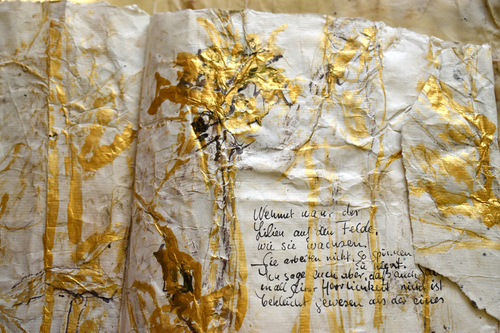 Nehmt wahr der
Lilien auf dem Felde,
wie sie wachsen.
Sie arbeiten nicht, so spinnen
sie nicht.
Ich sage euch aber, daß auch
in all seiner Herrlichkeit nicht ist
bekleidet gewesen als der eines